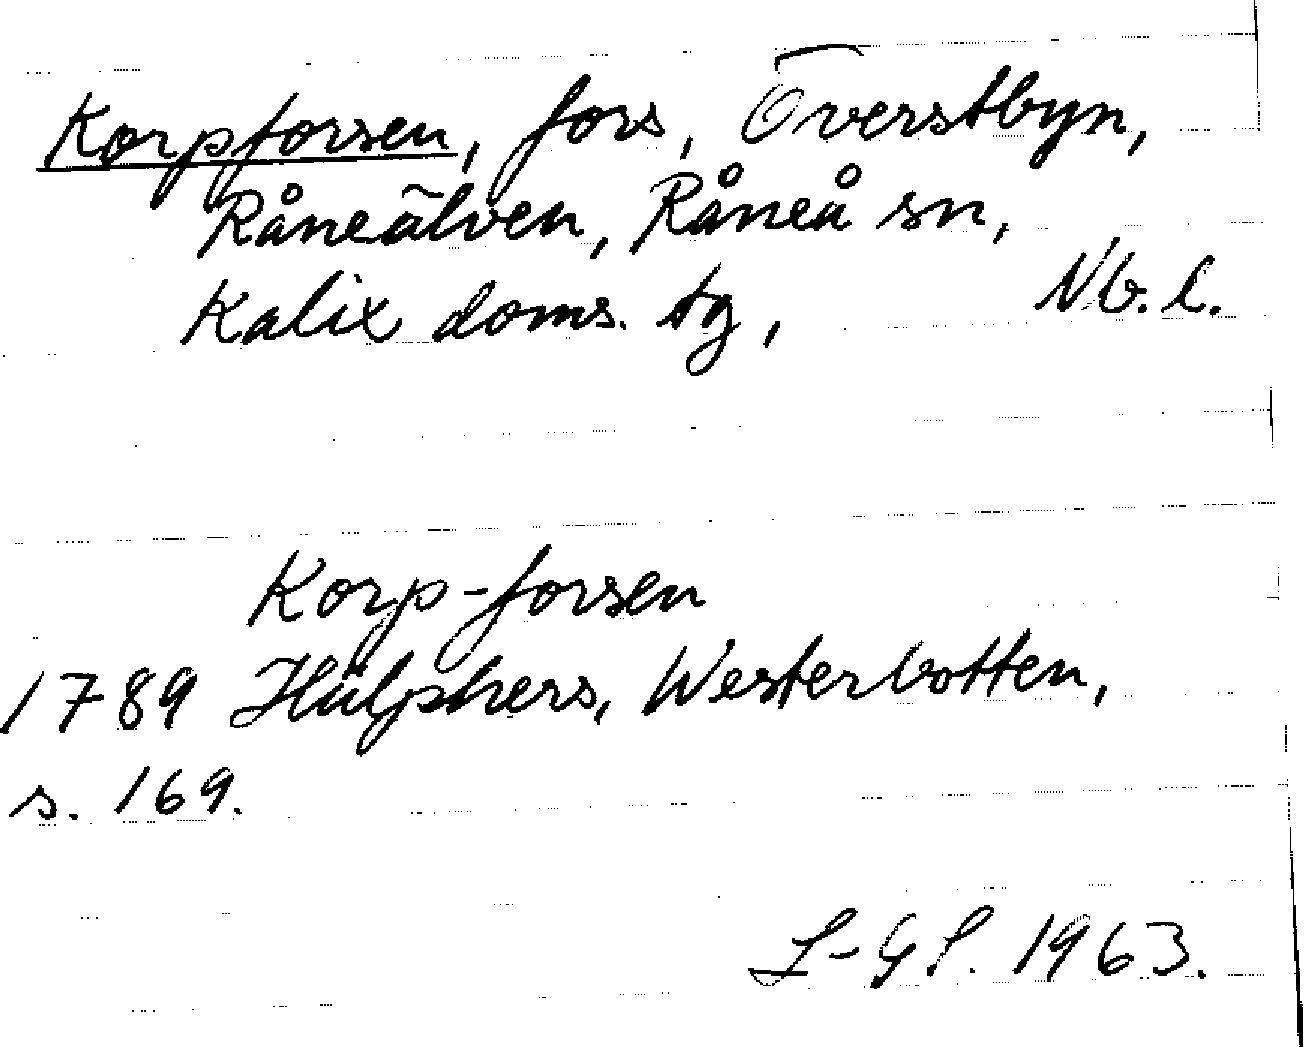 Korpforsen, fors, Överstbyn,
Råneälven, Råneå sn,
Kalix doms. tg, Nb. l.
Korp-forsen
1789 Hülphers, Westerbotten,
s. 169.
L-G S. 1963.